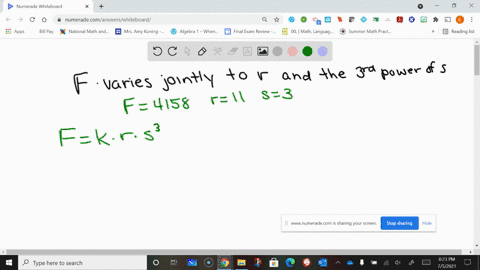 Numerade Whiteboard
numerade.com/answers/whiteboard/
Apps
Bill Pay
National Math and...
Mrs. Amy Koning -...
Algebra 1 – When...
Final Exam Review -...
IXL | Math, Languag...
Summer Math Practi...
Reading list
F varies jointly to r and the 3rd power of s
F=4158 r=11 s=3
F=k·r·s³
www.numerade.com is sharing your screen.
Stop sharing
Hide
Type here to search
6:23 PM
7/5/2021